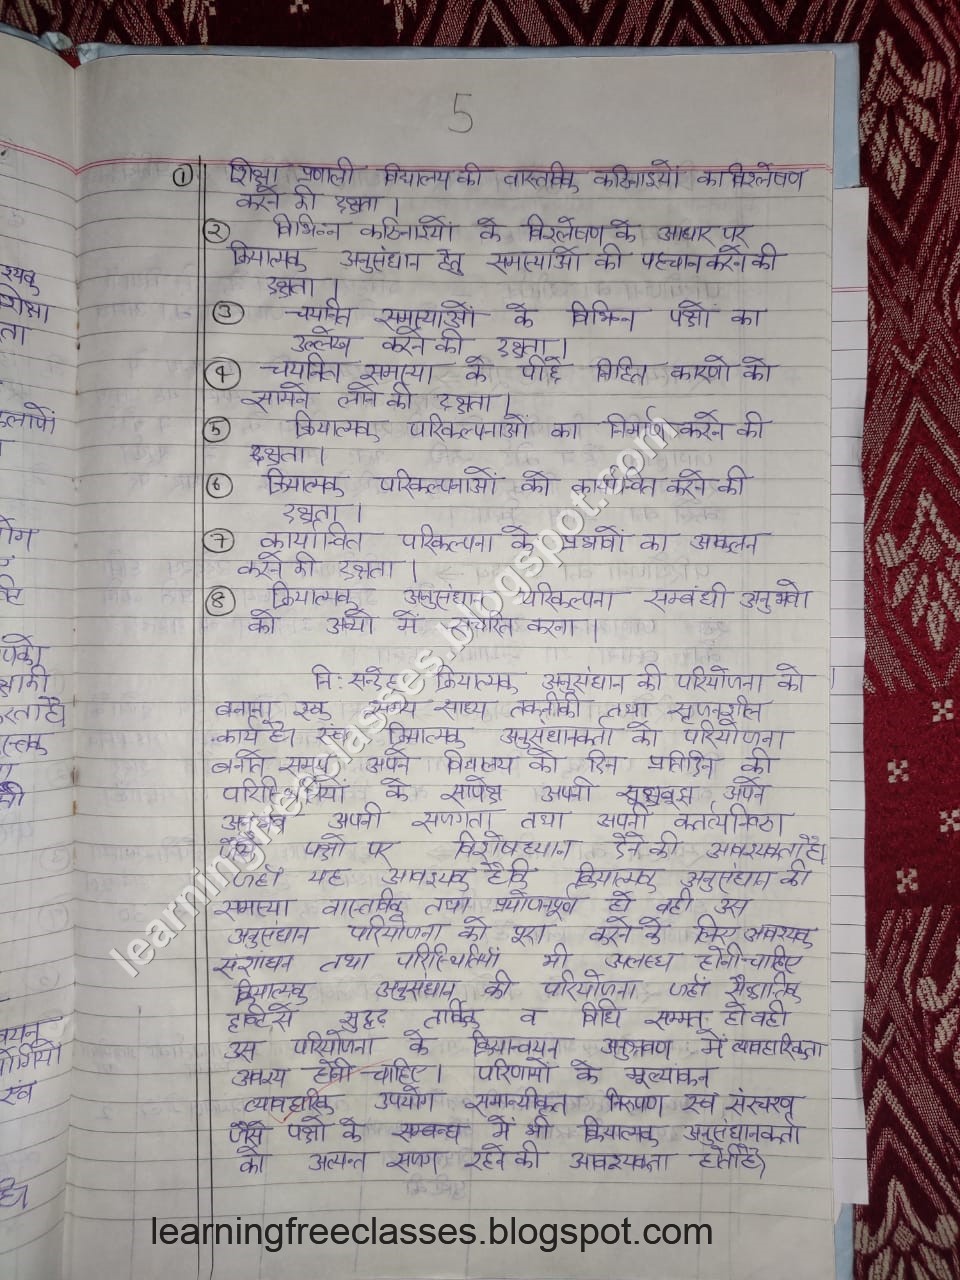 5
① शिक्षा प्रणाली विद्यालय की वास्तविक कठिनाइयों का विश्लेषण
करने की दक्षता ।
② विभिन्न कठिनाईयों के विश्लेषण के आधार पर
क्रियात्मक अनुसंधान हेतु समस्याओं की पहचान करने की
दक्षता ।
③ चयनित समस्याओं के विभिन्न पक्षों का
उल्लेख करने की दक्षता ।
④ चयनित समस्या के पीछे निहित कारणों को
सामने लाने की दक्षता ।
⑤ क्रियात्मक परिकल्पनाओं का निर्माण करने की
दक्षता ।
⑥ क्रियात्मक परिकल्पनाओं को कार्यान्वित करने की
दक्षता ।
⑦ कार्यान्वित परिकल्पना के प्रभावों का आकलन
करने की दक्षता ।
⑧ क्रियात्मक अनुसंधान परिकल्पना सम्बंधी अनुभवो
को अन्यों में संचरित करना ।
नि: सन्देह क्रियात्मक अनुसंधान की परियोजना को
बनाना एक समय साध्य तकनीकी तथा सृजनशील
कार्य है। एवं क्रियात्मक अनुसंधानकर्ता को परियोजना
बनाते समय अपने विद्यालय की दिन प्रतिदिन की
परिस्थितियों के सापेक्ष अपनी सूझबूझ अपने
अनुभव अपनी सजगता तथा अपनी कर्तव्यनिष्ठा
जैसे पक्षो पर विशेष ध्यान देने की आवश्यकता है।
जहां यह आवश्यक है कि क्रियात्मक अनुसंधान की
समस्या वास्तविक तथा प्रयोजनपूर्ण हो वही उस
अनुसंधान परियोजना को पूरा करने के लिए आवश्यक
संसाधन तथा परिस्थितियां भी उपलब्ध होनी चाहिए
क्रियात्मक अनुसंधान की परियोजना जहां सैद्धान्तिक
दृष्टि से सुदृढ़ तार्किक व विधि सम्मत हो वही
उस परियोजना के क्रियान्वयन अनुश्रवण में व्यावहारिकता
अवश्य होनी चाहिए। परिणामों के मूल्यांकन
व्यावहारिक उपयोग सामान्यीकृत निरूपण एवं
जैसे पक्षों के सम्बन्ध में भी क्रियात्मक अनुसंधानकर्ता
को अत्यन्त सजग रहने की आवश्यकता होती है।
learningfreeclasses.blogspot.com
learningfreeclasses.blogspot.com